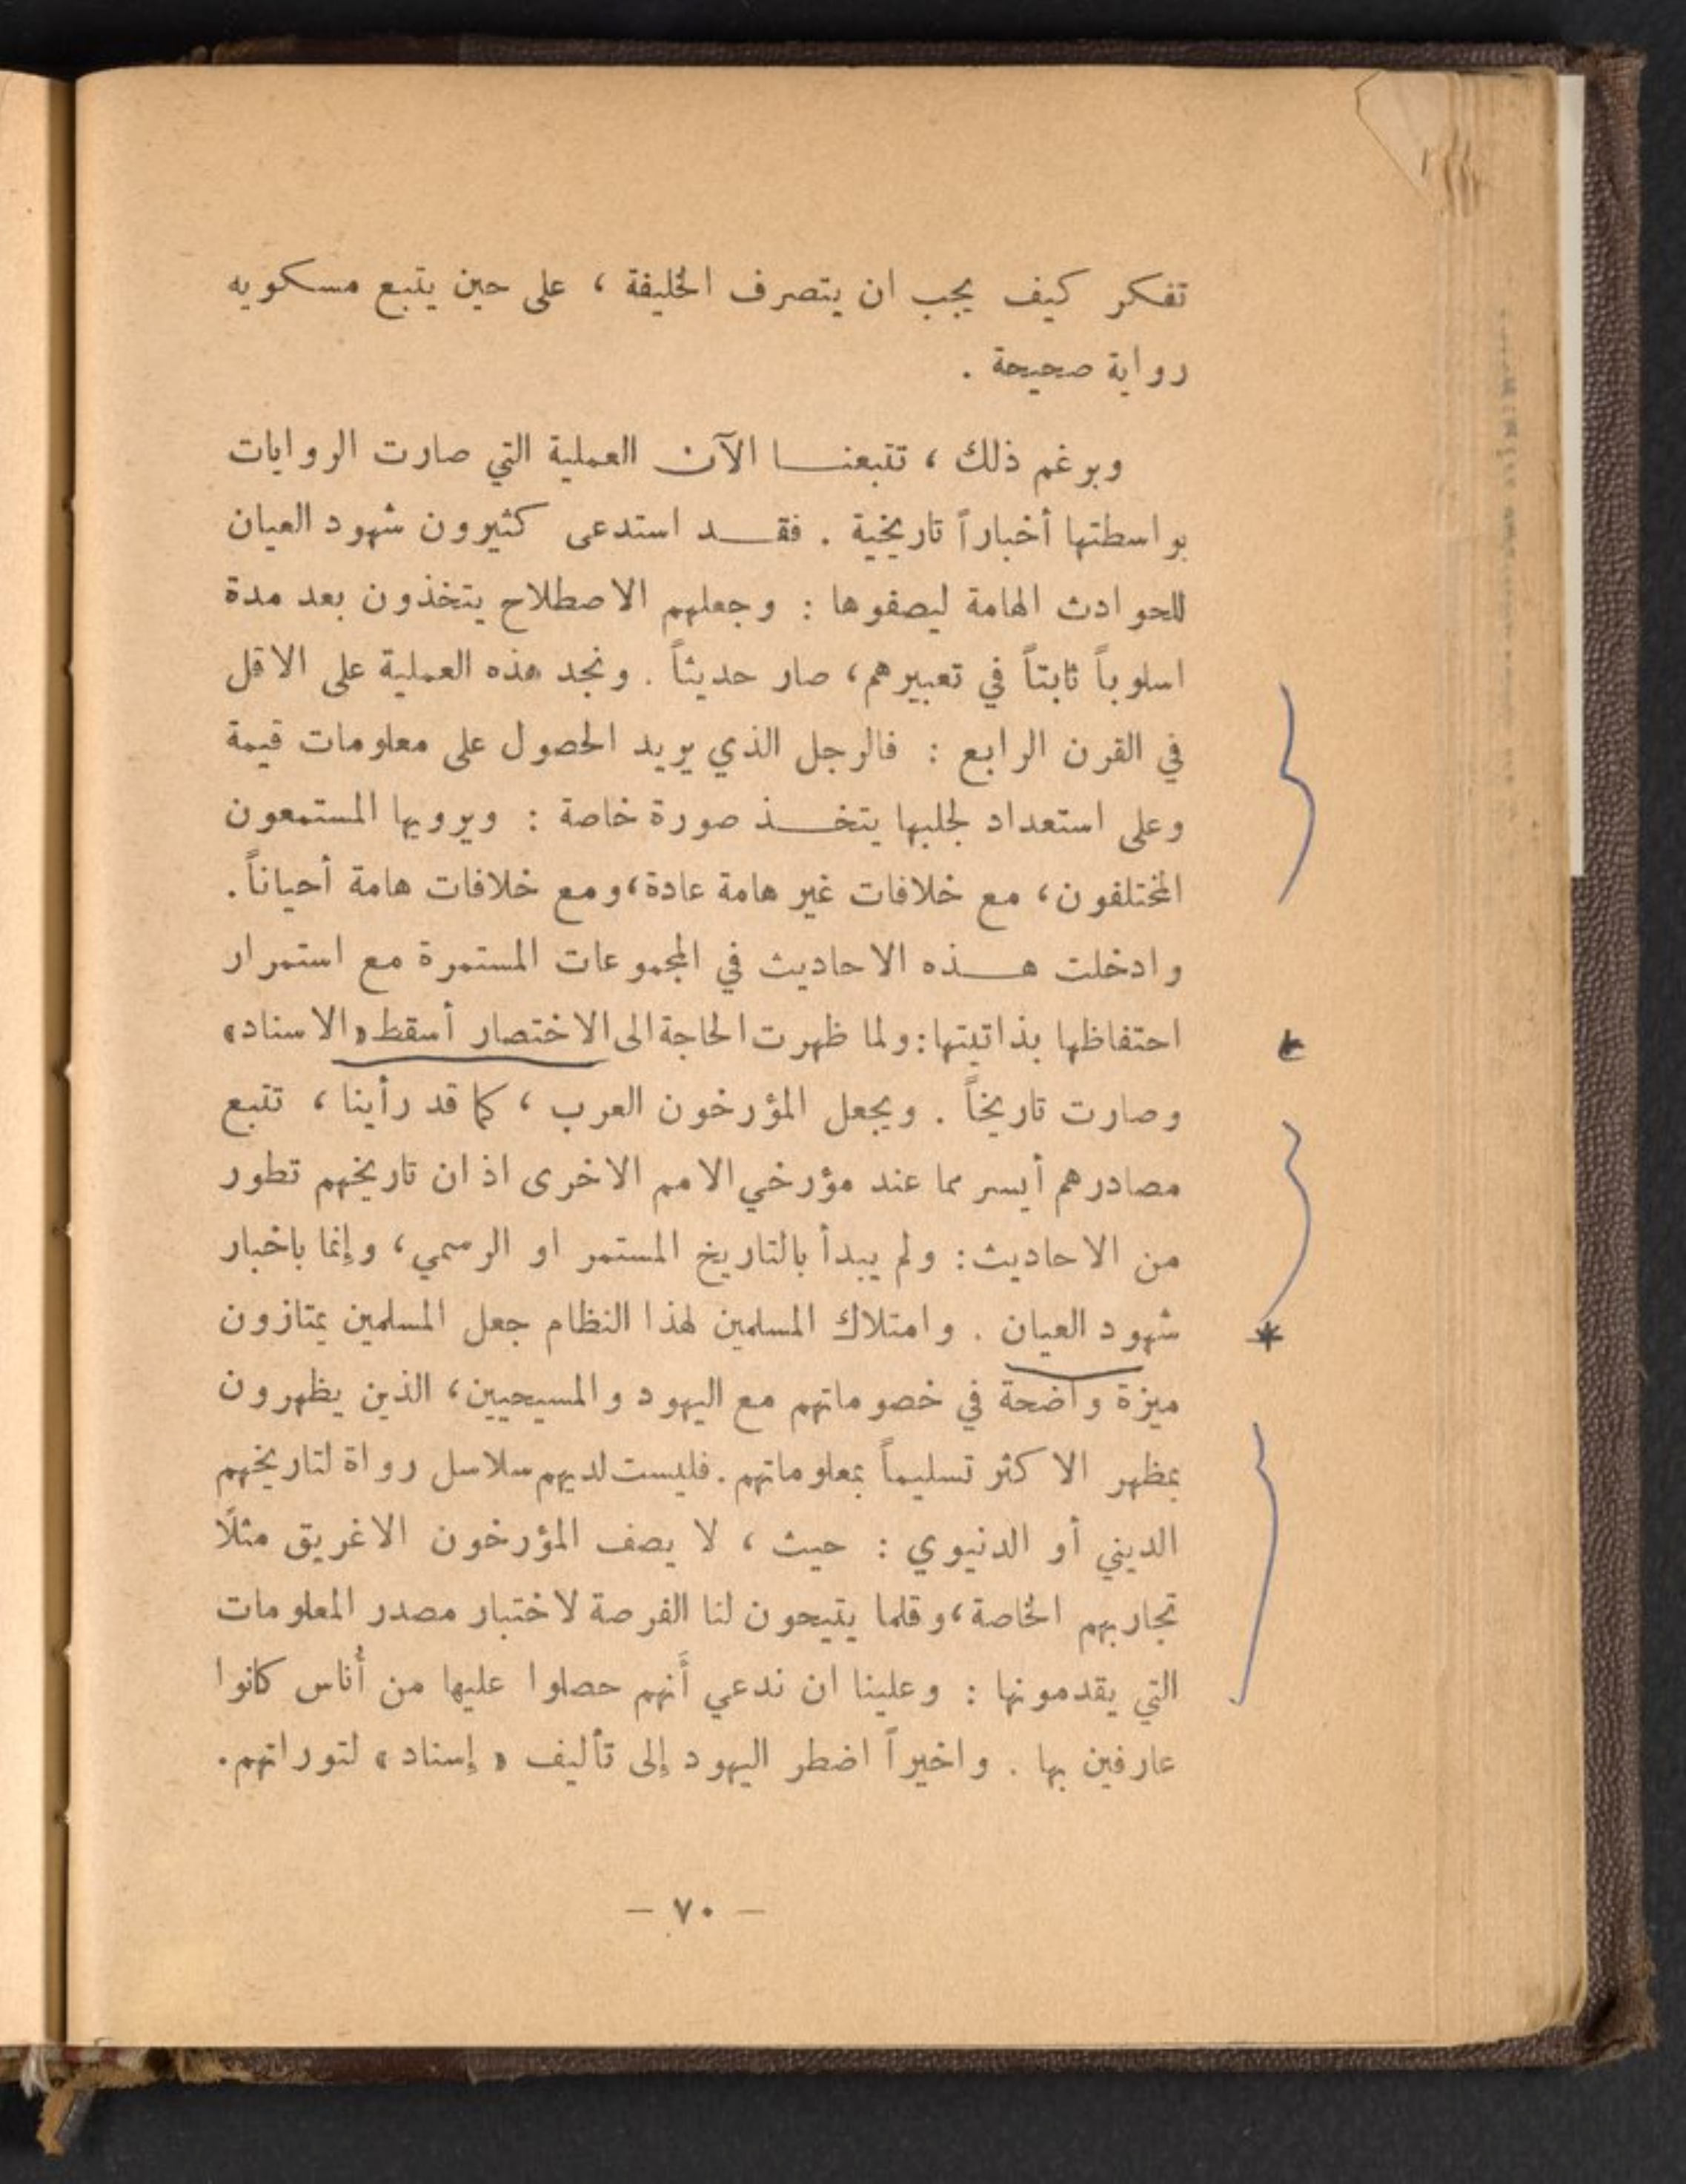 تفكر كيف يجب ان يتصرف الخليفة ، على حين يتبع مسكويه
رواية صحيحة .
وبرغم ذلك ، تتبعنا الآن العملية التي صارت الروايات
بواسطتها أخباراً تاريخية . فقد استدعى كثيرون شهود العيان
للحوادث الهامة ليصفوها : وجعلهم الاصطلاح يتخذون بعد مدة
اسلوباً ثابتاً في تعبيرهم، صار حديثاً . ونجد هذه العملية على الاقل
في القرن الرابع : فالرجل الذي يريد الحصول على معلومات قيمة
وعلى استعداد لجلبها يتخذ صورة خاصة : ويرويها المستمعون
المختلفون، مع خلافات غير هامة عادة، ومع خلافات هامة أحياناً.
وادخلت هذه الاحاديث في المجموعات المستمرة مع استمرار
احتفاظها بذاتيتها: ولما ظهرت الحاجة الى الاختصار أسقط «الاسناد»
وصارت تاريخاً . ويجعل المؤرخون العرب ، كما قد رأينا ، تتبع
مصادرهم أيسر مما عند مؤرخي الامم الاخرى اذ ان تاريخهم تطور
من الاحاديث: ولم يبدأ بالتاريخ المستمر او الرسمي، وإنما باخبار
شهود العيان . وامتلاك المسلمين لهذا النظام جعل المسلمين يمتازون
ميزة واضحة في خصوماتهم مع اليهود والمسيحيين، الذين يظهرون
بمظهر الاكثر تسليماً بمعلوماتهم. فليست لديهم سلاسل رواة لتاريخهم
الديني أو الدنيوي : حيث ، لا يصف المؤرخون الاغريق مثلًا
تجاربهم الخاصة، وقلما يتيحون لنا الفرصة لاختبار مصدر المعلومات
التي يقدمونها : وعلينا ان ندعي أَنهم حصلوا عليها من أُناس كانوا
عارفين بها . واخيراً اضطر اليهود إلى تأليف « إسناد » لتوراتهم.
— ٧٠ —